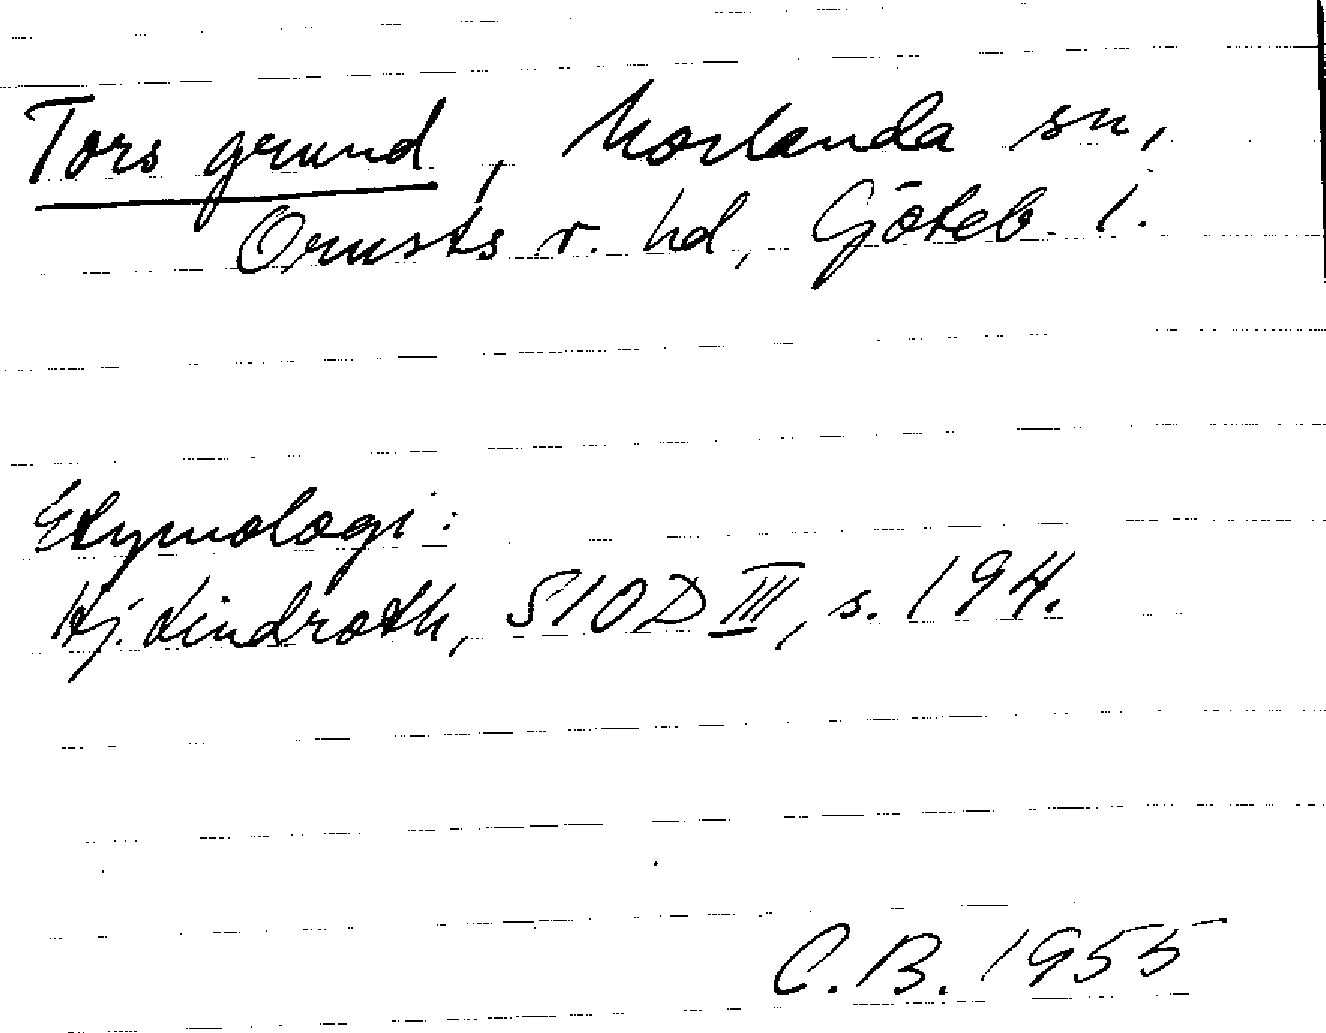 Tors grund, Morlanda sn,
Orusts v. hd, Göteb. l.
Etymologi:
Hj. Lindroth, SIOD III, s. 194.
C.B. 1955